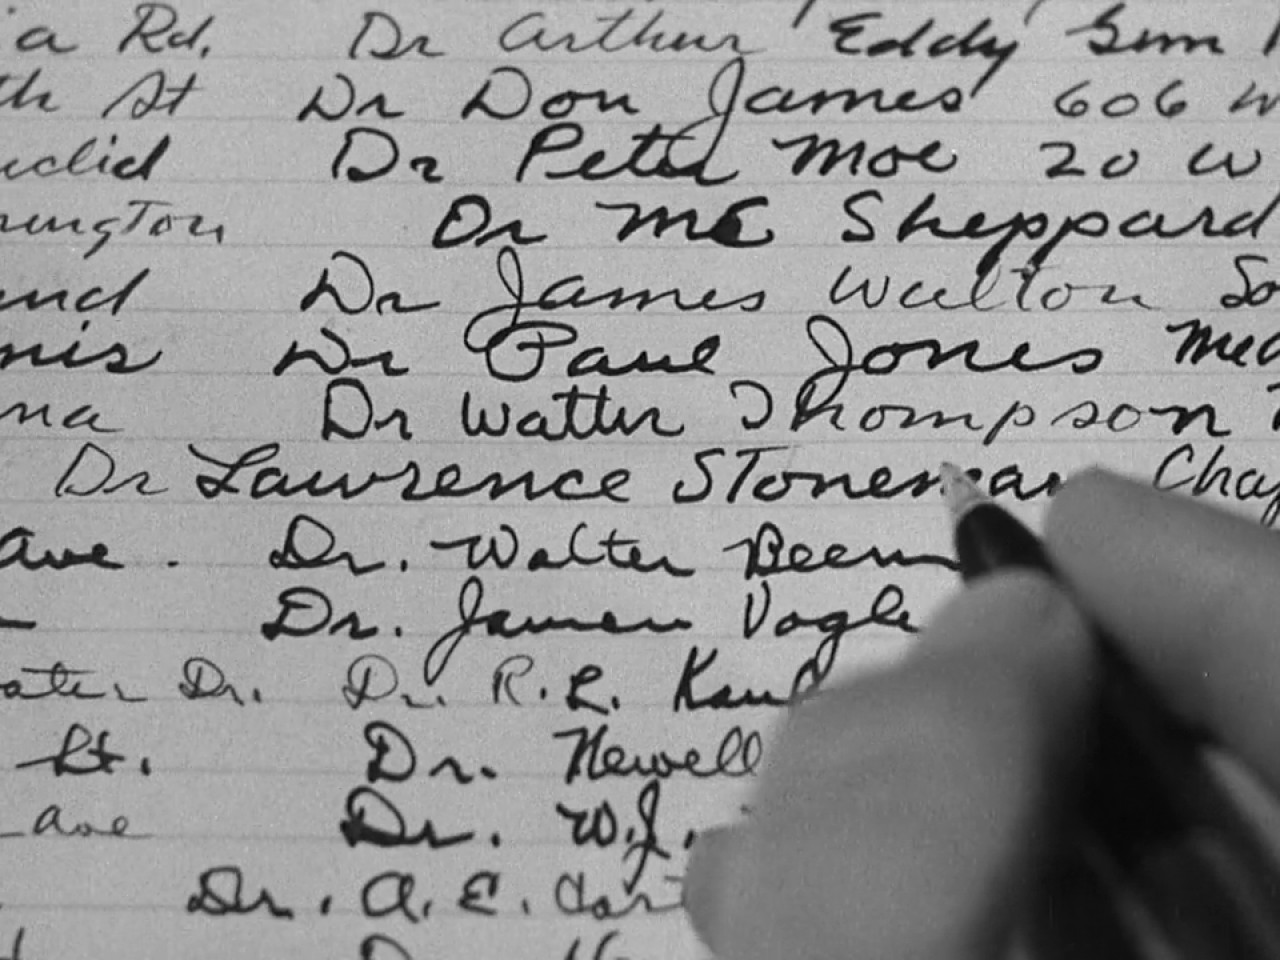 ia Rd. Dr Arthur Eddy Gim
th St Dr Don James 606 W
uclid Dr Peter Moe 20 W
rington Dr MC Sheppard
and Dr James Walton So
nis Dr Paul Jones Med
na Dr Walter Thompson
Dr Lawrence Stoneman Chap
Ave. Dr. Walter Beem
Dr. James Vogle
ater Dr. Dr. R. L. Kauf
St. Dr. Newell
Ave Dr. W.J.
Dr. A. E. Cart